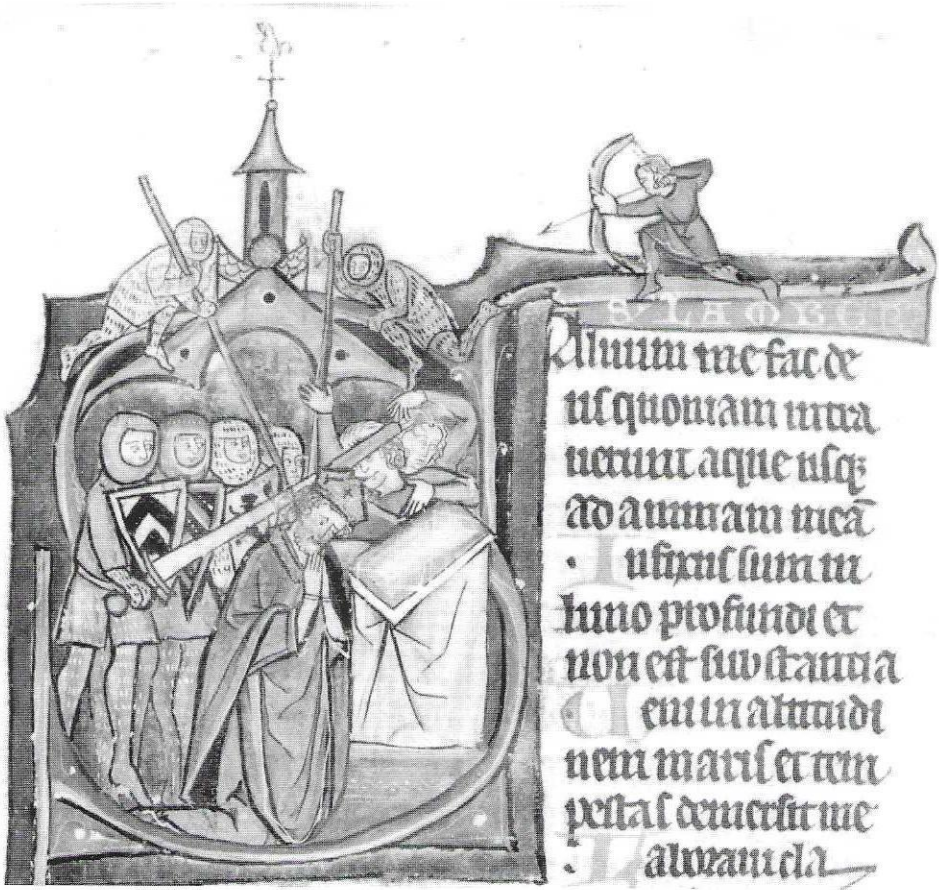 S' LAMBER
Aluum me fac de
us quoniam intra
uerunt aque usqꝫ
ad animam meā
Infixus sum in
limo profundi et
non est substantia
Veni in altitudi
nem maris et tem
pestas demersit me
Laboraui cla